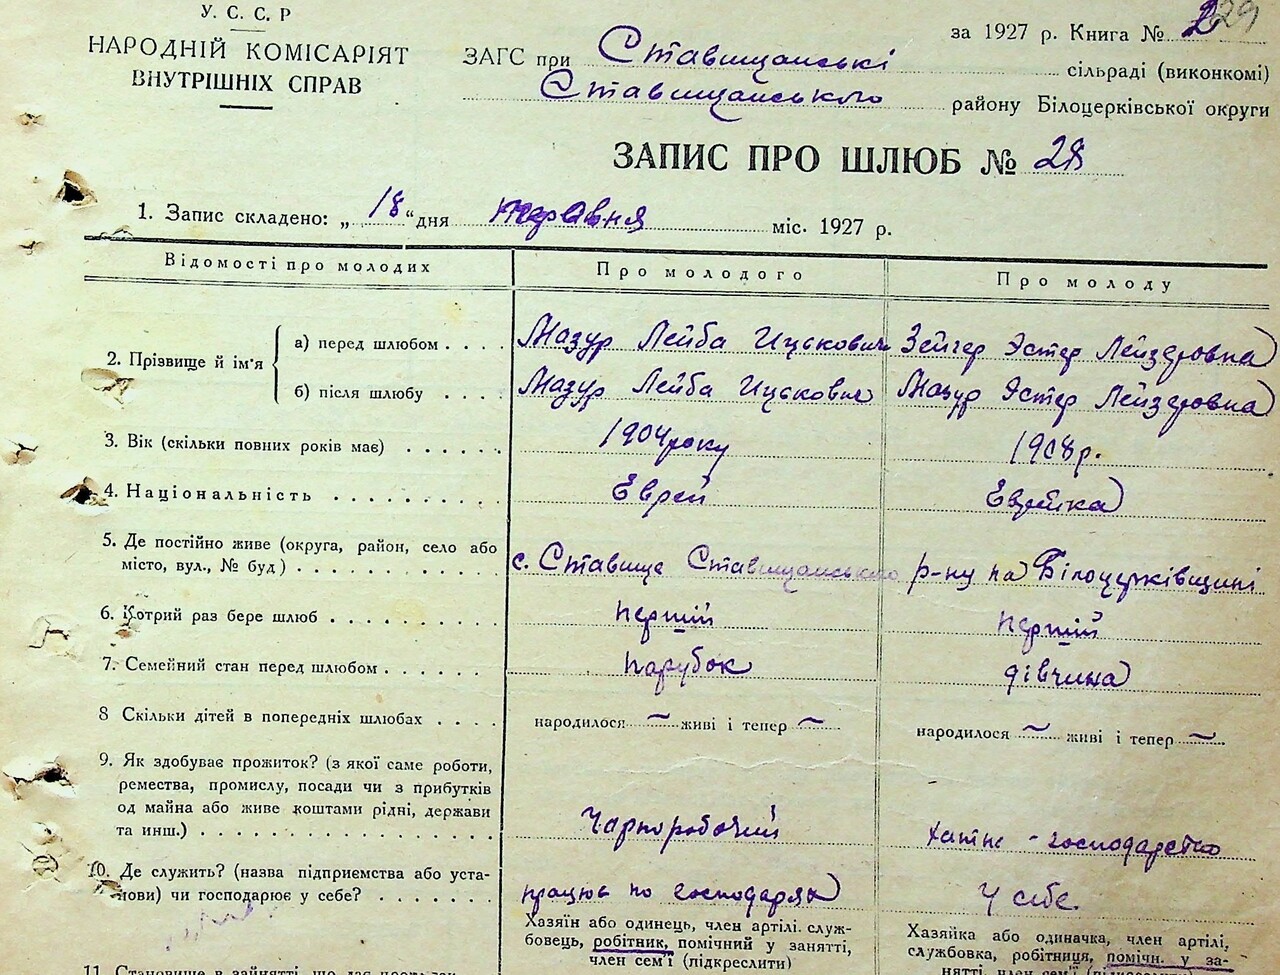 У. С. С. Р
НАРОДНІЙ КОМІСАРІЯТ
ВНУТРІШНІХ СПРАВ
за 1927 р. Книга № 2 29
ЗАГС при Ставищанські сільраді (виконкомі)
Ставищанського району Білоцерківської округи
ЗАПИС ПРО ШЛЮБ № 28
1. Запис складено: „18“ дня травня міс. 1927 р.
Відомості про молодих Про молодого Про молоду
2. Прізвище й ім'я
а) перед шлюбом .... Мазур Лейба Ицькович Зейгер Эстер Лейзеровна
б) після шлюбу .... Мазур Лейба Ицькович Мазур Эстер Лейзеровна
3. Вік (скільки повних років має) ...... 1904 року 1908 р.
4. Національність .......... Еврей Еврейка
5. Де постійно живе (округа, район, село або
місто, вул., № буд) .......... с. Ставище Ставищанського р-ну на Білоцерківщині
6. Котрий раз бере шлюб .......... перший перший
7. Семейний стан перед шлюбом ....... парубок дівчина
8 Скільки дітей в попередніх шлюбах .... народилося ~ живі і тепер ~ народилося ~ живі і тепер ~
9. Як здобуває прожиток? (з якої саме роботи,
ремества, промислу, посади чи з прибутків
од майна або живе коштами рідні, держави
та инш.) .............. Чорноробочий хатне - господарство
10. Де служить? (назва підприємства або уста-
нови) чи господарює у себе? ....... працює по господарях У себе.
Хазяїн або одинець, член артілі. служ-
бовець, робітник, помічний у занятті,
член сем'ї (підкреслити)
Хазяйка або одиначка, член артілі,
службовка, робітниця, помічн. у за-
нятті, член сім'ї
11. Становище в зайнятті, що дає